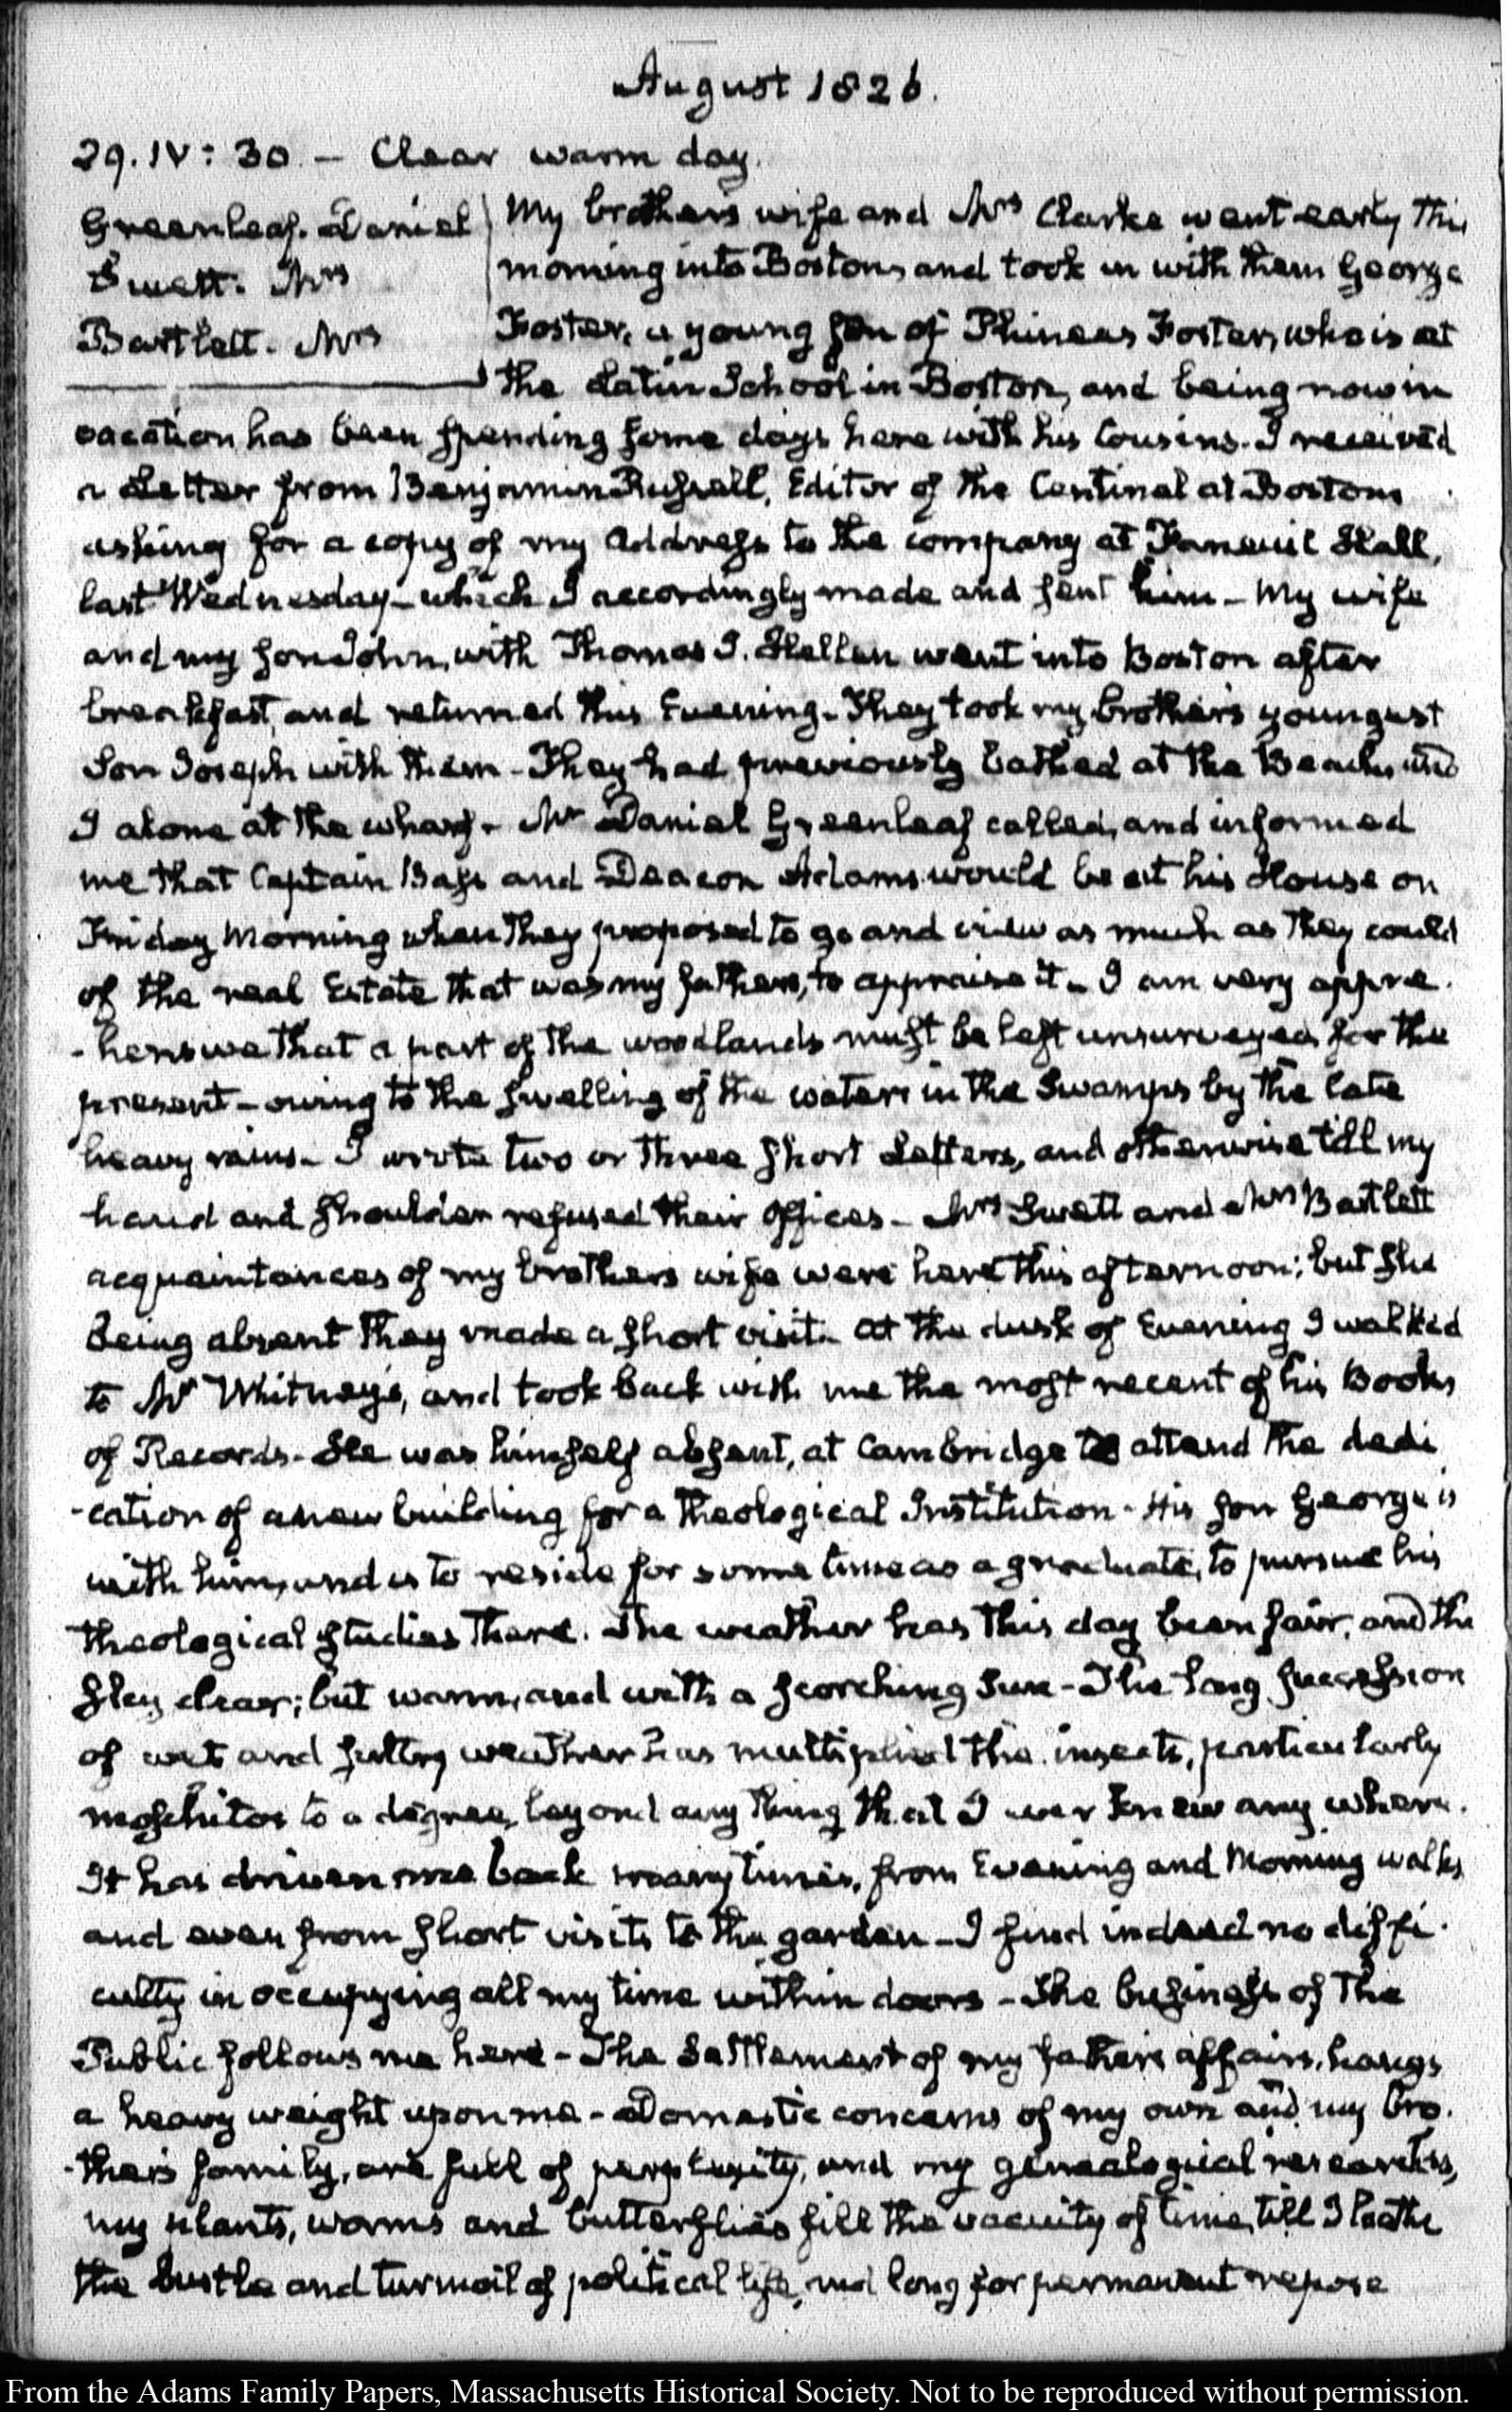 August 1826.
29. IV: 30 — Clear warm day.
Greenleaf. Daniel
Swett. Mrs
Bartlett. Mrs
My brother's wife and Mrs Clarke went early this
morning into Boston, and took in with them George
Foster, a young son of Phineas Foster, who is at
the Latin School in Boston, and being now in
vacation has been spending some days here with his Cousins. I received
a Letter from Benjamin Russell, Editor of the Centinal at Boston
asking for a copy of my Address to the company at Faneuil Hall,
last Wednesday - which I accordingly made and sent him - My wife
and my son John, with Thomas J. Hellen went into Boston after
breakfast, and returned this Evening. They took my brother's youngest
Son Joseph with them - They had previously bathed at the Beach, and
I alone at the wharf. Mr Daniel Greenleaf called, and informed
me that Captain Bass and Deacon Adams would be at his House on
Friday Morning when they proposed to go and view as much as they could
of the real Estate that was my father's, to appraise it - I am very appre-
-hensive that a part of the woodlands must be left unsurveyed for the
present - owing to the swelling of the waters in the Swamps by the late
heavy rains. I wrote two or three short Letters, and otherwise till my
hand and shoulder refused their offices - Mrs Swett and Mrs Bartlett
acquaintances of my brother's wife were here this afternoon; but she
being absent they made a short visit. At the dusk of Evening I walked
to Mr Whitney's, and took back with me the most recent of his Books
of Records. He was himself absent, at Cambridge to attend the dedi
-cation of a new building for a Theological Institution - His son George is
with him, and is to reside for some time as a graduate, to pursue his
theological studies there. The weather has this day been fair, and the
sky clear; but warm, and with a scorching Sun - The long succession
of wet and sultry weather has multiplied the insects, particularly
moschitos to a degree, beyond any thing that I ever knew any where.
It has driven me back many times, from Evening and Morning walks
and even from short visits to the garden - I find indeed no diffi-
culty in occupying all my time within doors - The business of the
Public follows me here - The Settlement of my father's affairs, hangs
a heavy weight upon me - Domestic concerns of my own and my bro-
-ther's family, are full of perplexity, and my genealogical researches,
my plants, worms and butterflies fill the vacuity of time, till I loathe
the bustle and turmoil of political life, and long for permanent repose
From the Adams Family Papers, Massachusetts Historical Society. Not to be reproduced without permission.